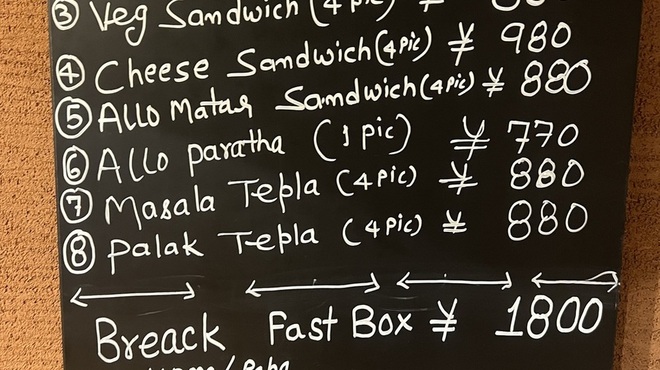 ③ Veg Sandwich (4 pic) ¥
④ Cheese Sandwich (4 pic) ¥ 980
⑤ Allo Matar Sandwich (4 pic) ¥ 880
⑥ Allo paratha (1 pic) ¥ 770
⑦ Masala Tepla (4 pic) ¥ 880
⑧ palak Tepla (4 pic) ¥ 880
Breack Fast Box ¥ 1800